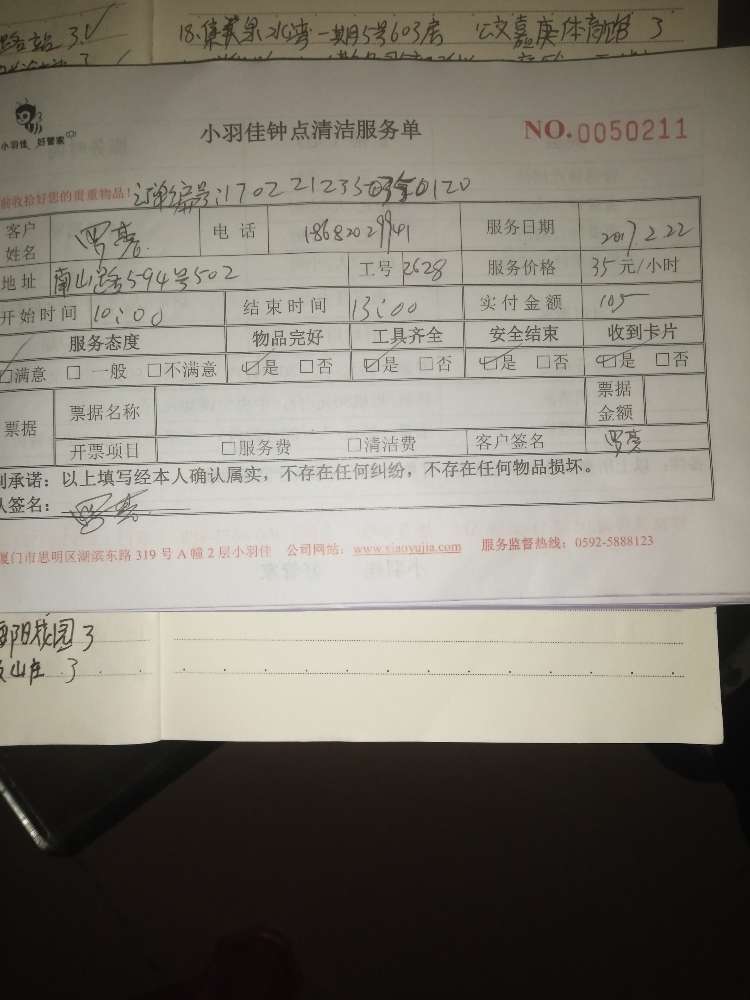 路站 3.✓ 18.集 果 湾一期5号603房 公交嘉庚体育馆 3
小羽佳 好管家
小羽佳钟点清洁服务单 NO.0050211
前收拾好您的贵重物品! 订单编号:170221235 0120
客户姓名 罗亮 电 话 18682029941 服务日期 2017.2.22
地址 南山路594号502 工号 2628 服务价格 35元/小时
开始时间 10:00 结束时间 13:00 实付金额 105
服务态度 物品完好 工具齐全 安全结束 收到卡片
☑满意 □ 一般 □不满意 ☑是 □否 ☑是 □否 ☑是 □否 ☑是 □否
票据 票据名称 票据金额
开票项目 □服务费 □清洁费 客户签名 罗亮
承诺：以上填写经本人确认属实，不存在任何纠纷，不存在任何物品损坏。
签名： 罗亮
厦门市思明区湖滨东路 319 号 A 幢 2 层小羽佳 公司网站：www.xiaoyujia.com 服务监督热线：0592-5888123
阳 园 3
山庄 3